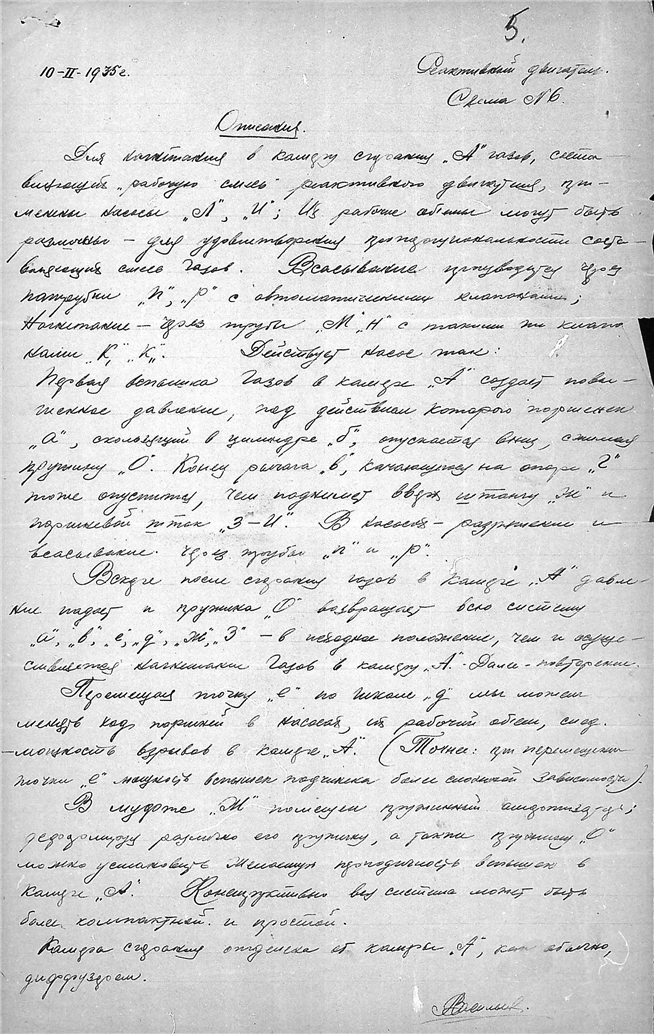 5.
10-II-1935г. Реактивный двигатель.
Схема N6.
Описания.
Для нагнетания в камеру сгорания „А" газов, соста-
вляющих „рабочую смесь" реактивного двигателя, при-
менены насосы „Л", „И"; Их рабочие объемы могут быть
различны - для удовлетворения пропорциональности соста-
вляющих смесь газов. Всасывание производится через
патрубки „п", „р" с автоматическими клапанами;
Нагнетание - через трубы „М" „Н" с такими же клапа
нами „К", „К". Действует насос так:
Первая вспышка газов в камере „А" создает повы-
шенное давление, под действием которого поршенек
„а", скользящий в цилиндре „б", опускается вниз, сжимая
пружину „О". Конец рычага „в", качающегося на опоре „г"
тоже опустится, чем поднимет вверх штангу „Ж" и
поршневой шток „З-И". В насосах - разряжение и
всасывание через трубы „п" и „р".
Вскоре после сгорания газов в камере „А" давле-
ние падает и пружина „О" возвращает всю систему
„а", „в", „е", „д", „Ж", „З" - в исходное положение, чем и осуще-
ствляется нагнетание газов в камеру „А". Далее - повторение.
Перемещая точку „е" по шкале „д" мы можем
менять ход поршней в насосах, их рабочий объем, след.
-мощность взрывов в камере „А". (Точнее: при перемещении
точки „е" мощность вспышек подчинена более сложной зависимости).
В муфте „Ж" помещен пружинный амортизатор;
различно его пружину, а также пружину „О"
можно установить желаемую периодичность вспышек в
камере „А". Конструктивно вся система может быть
более компактной и простой.
Камера сгорания отделена от камеры „А", как обычно,
диффузором.
Васильев.